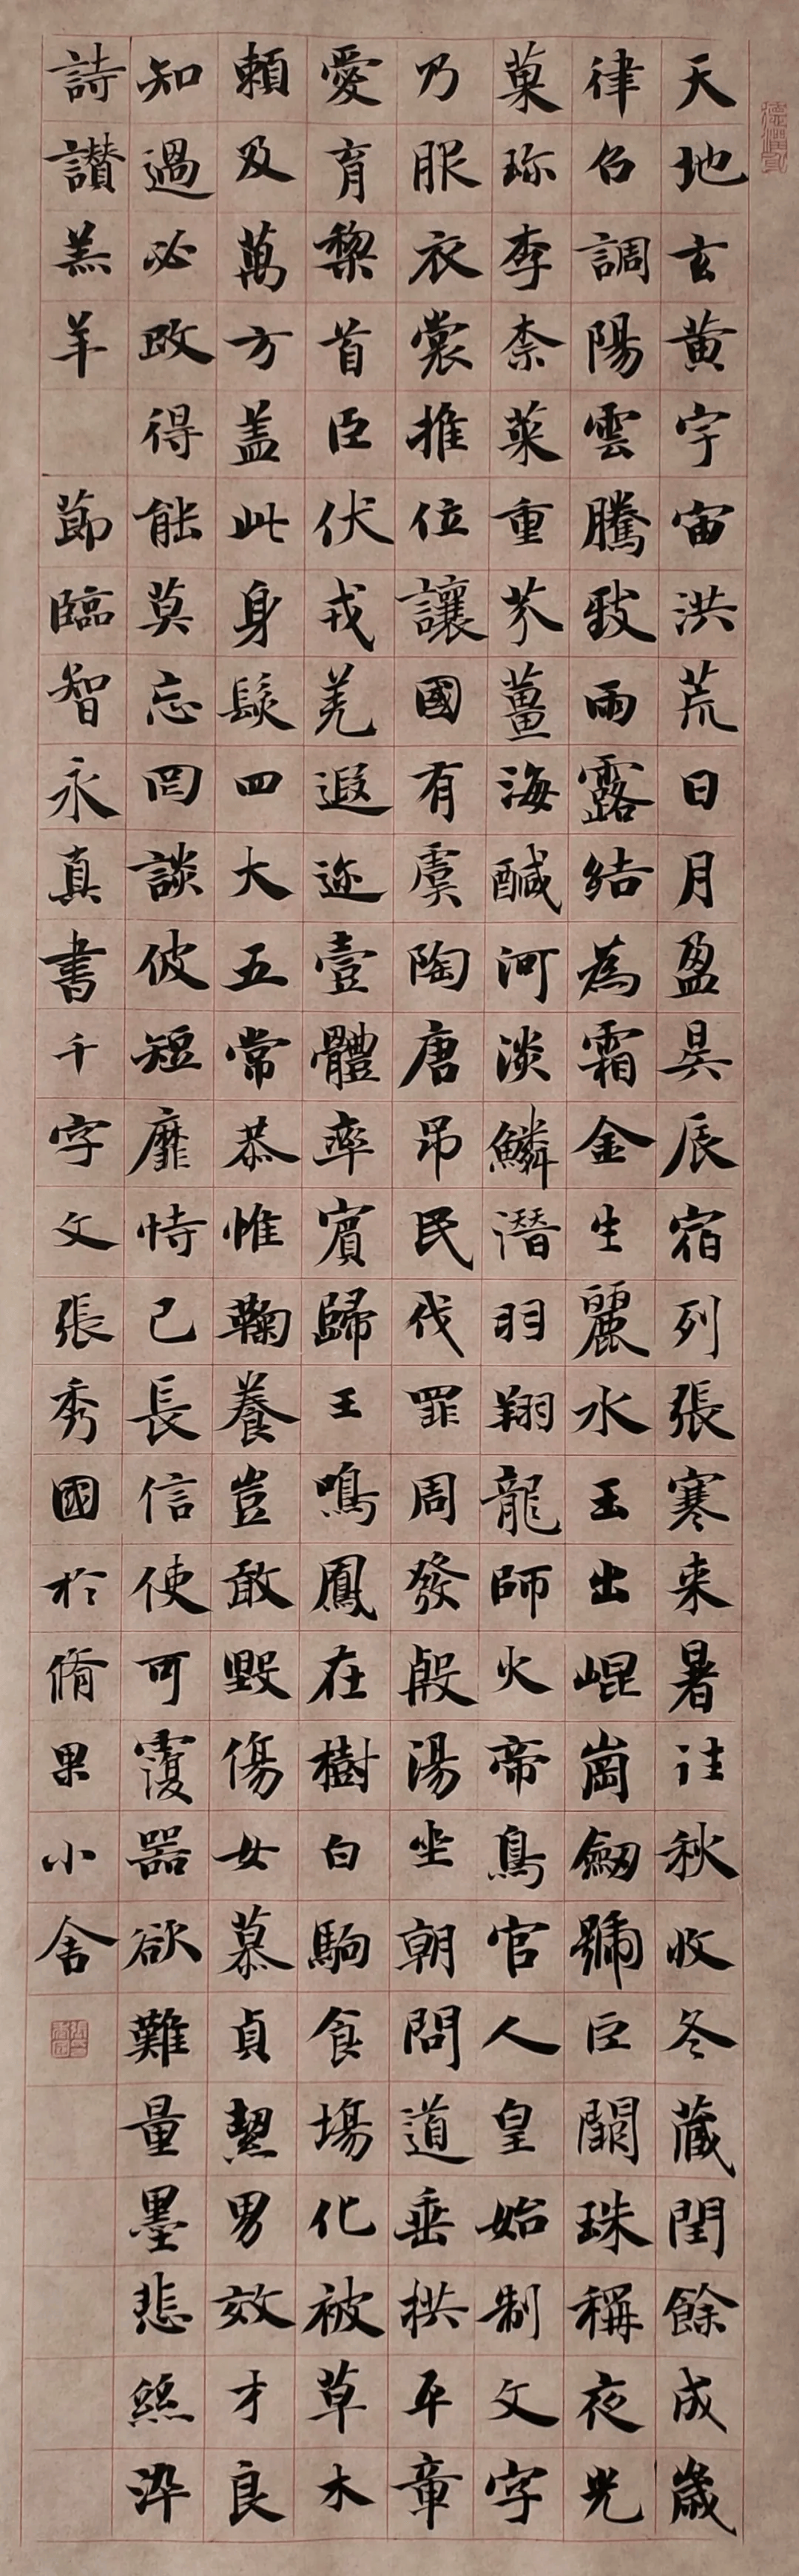 天地玄黄宇宙洪荒日月盈昃辰宿列張寒来暑往秋收冬蔵閏餘成歳
律召調陽雲騰致雨露結為霜金生麗水玉出崐崗劒號巨闕珠稱夜光
菓珎李柰菜重芥薑海醎河淡鱗潛羽翔龍師火帝鳥官人皇始制文字
乃服衣裳推位讓國有虞陶唐吊民伐罪周發殷湯坐朝問道垂拱平章
愛育黎首臣伏戎羌遐迩壹體率賓歸王鳴鳳在樹白駒食場化被草木
頼及萬方盖此身髮四大五常恭惟鞠養豈敢毀傷女慕貞絜男效才良
知過必改得能莫忘罔談彼短靡恃己長信使可覆器欲難量墨悲絲染
詩讃羔羊 節臨智永真書千字文張秀國於脩果小舍